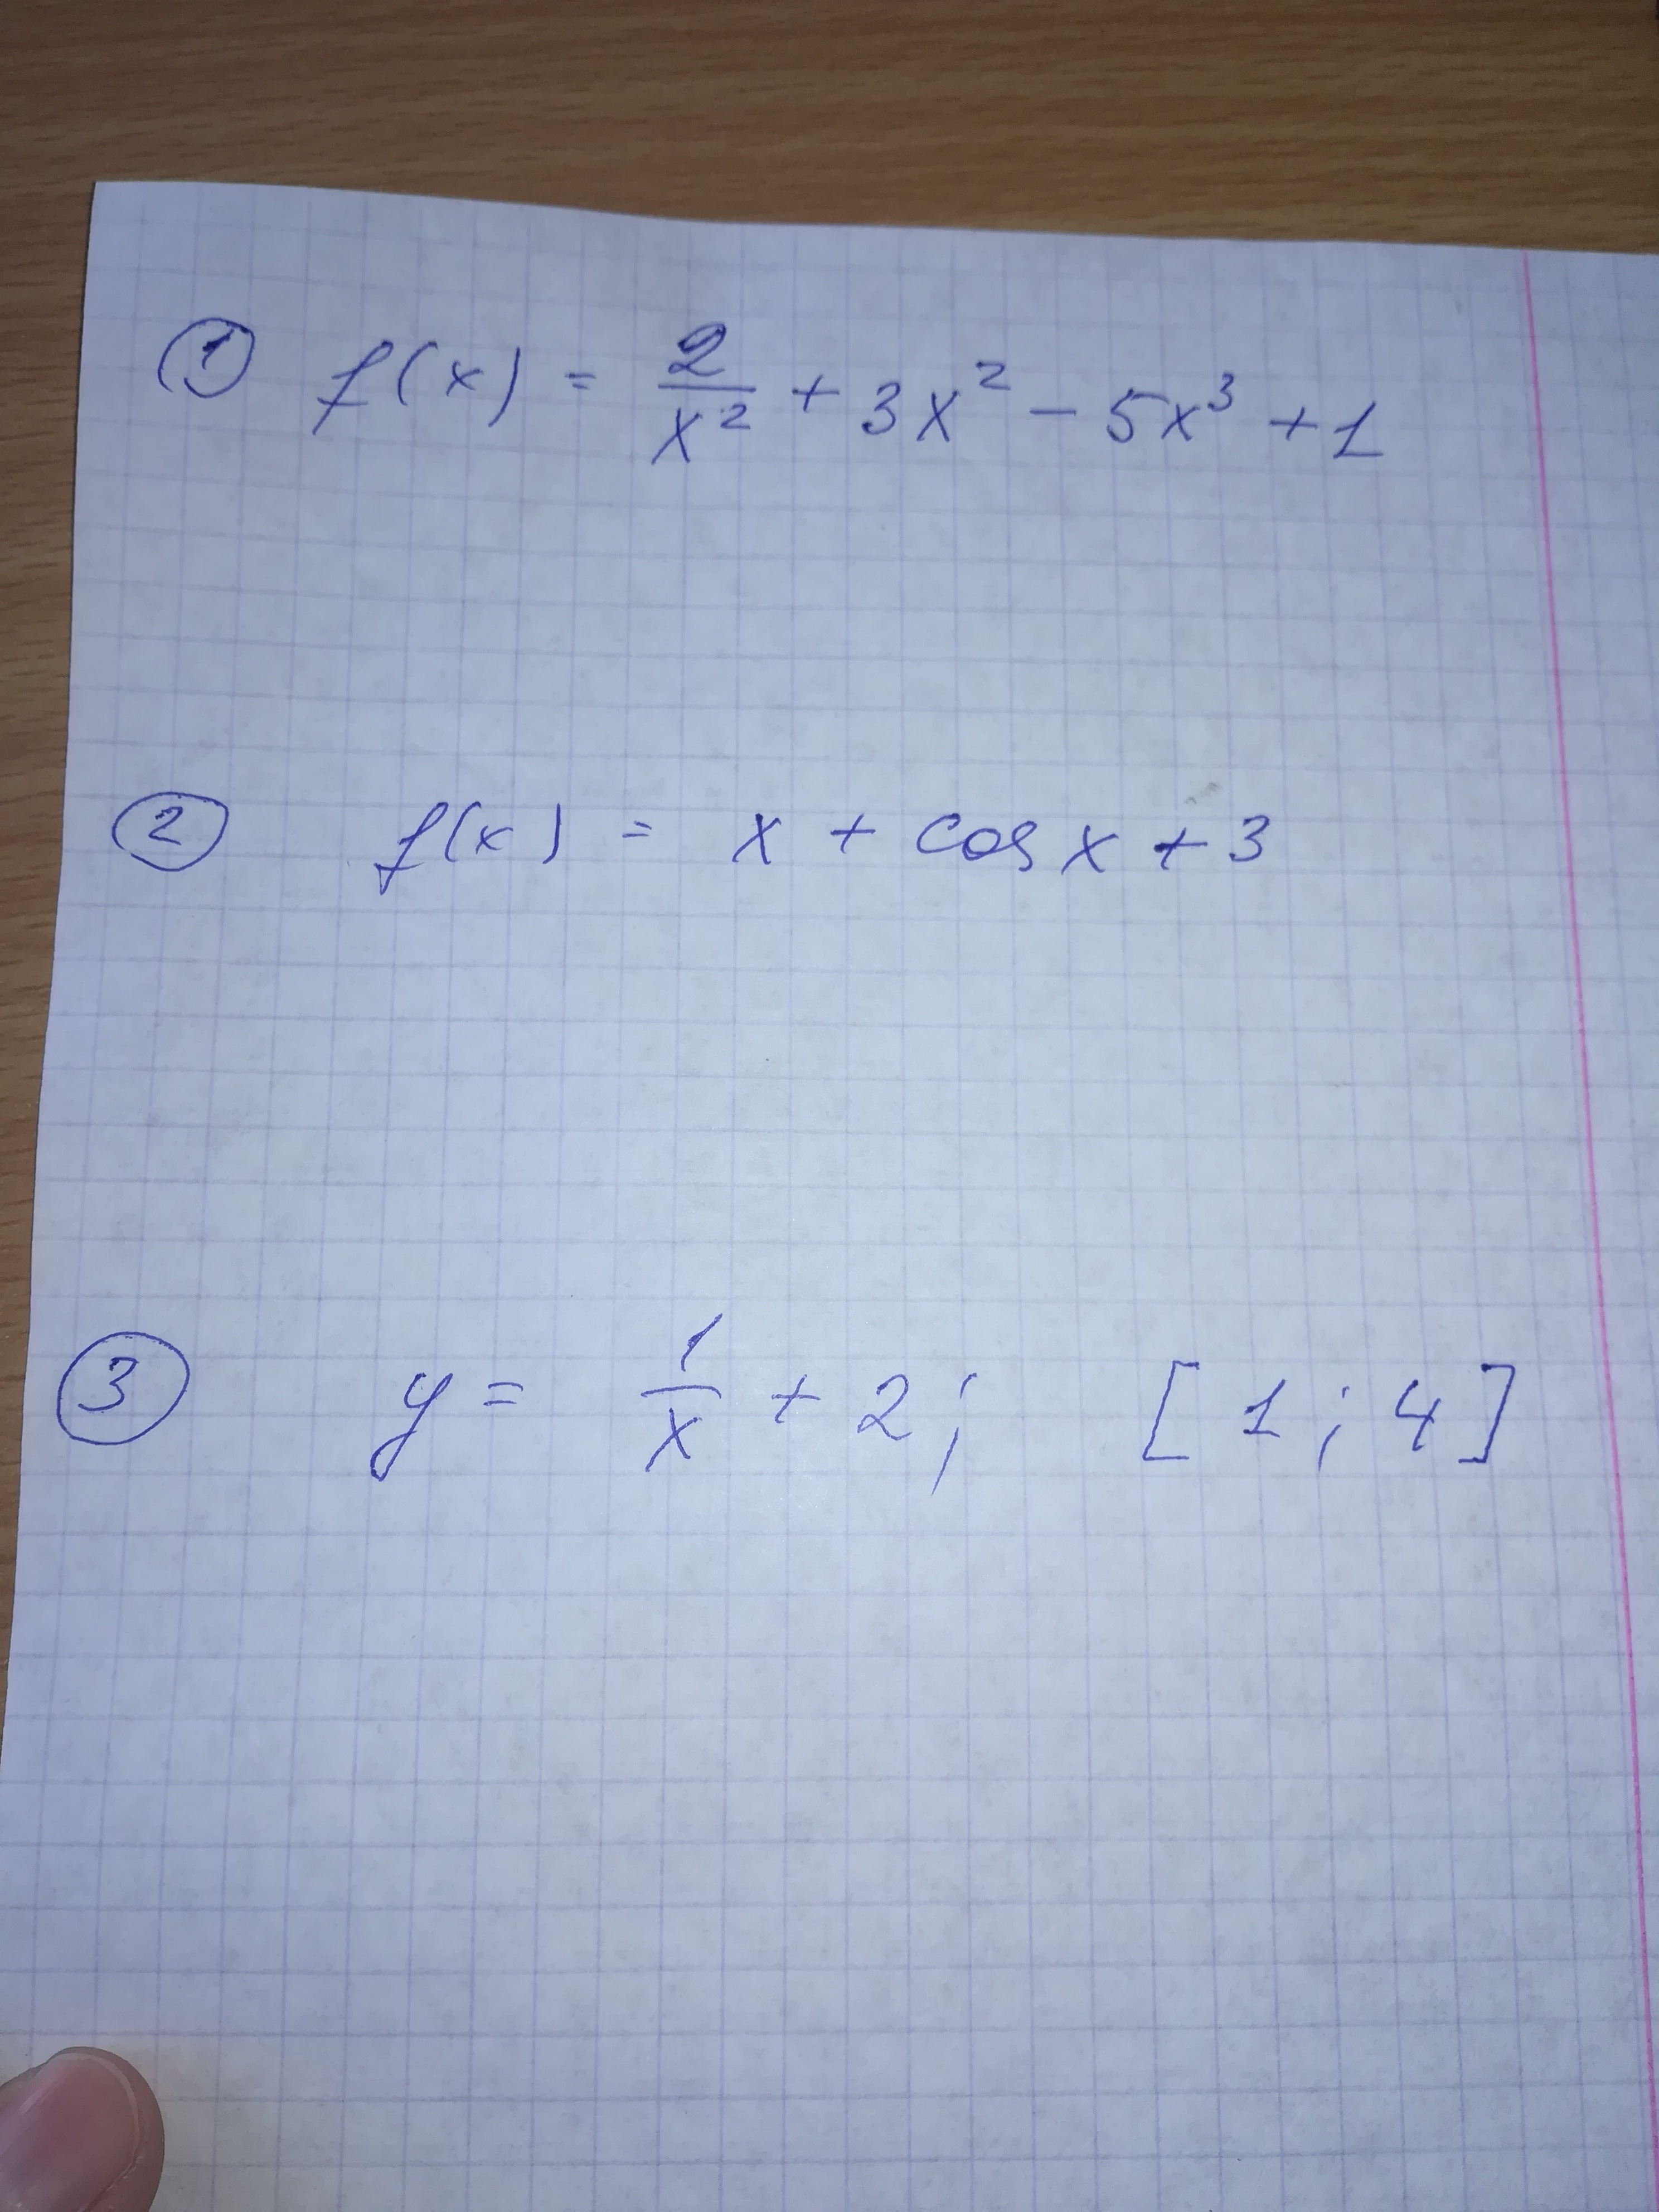 ① f(x) = 2/x² + 3x² - 5x³ + 1
② f(x) = x + cos x + 3
③ y = 1/x + 2; [1; 4]